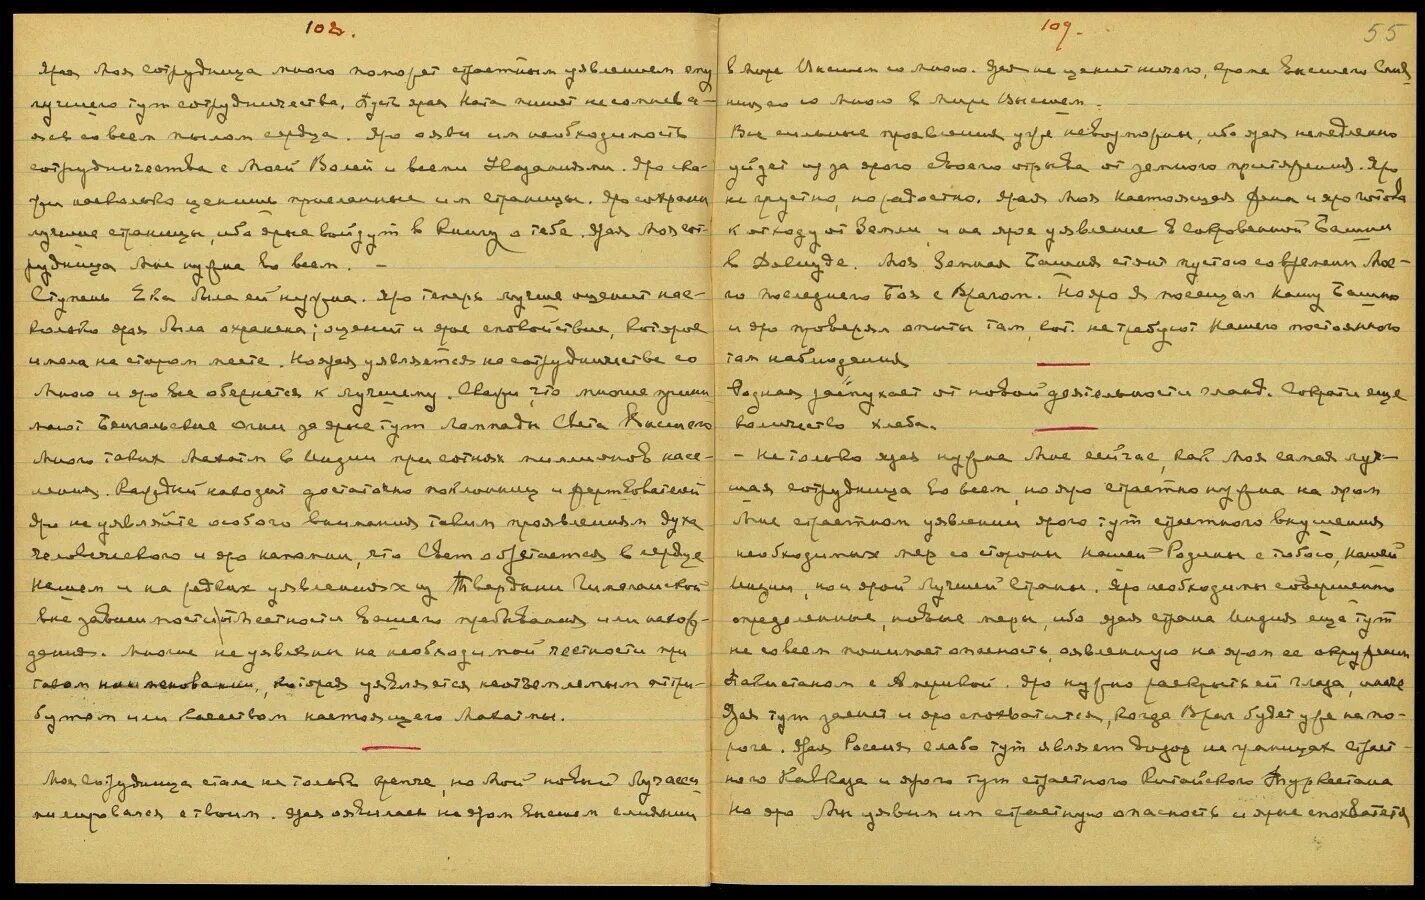 108.
Ярая Моя сотрудница много поможет страстным уявлением ему
лучшего тут сотрудничества. Пусть ярая Ката пишет не сомнева-
ясь со всем пылом сердца. Яро яви им необходимость
сотрудничества с Моей Волей и всеми Указаниями. Яро ска-
жи насколько ценишь присланные им страницы. Яро сохрани
лучшие страницы, ибо ярые войдут в Книгу о тебе. Ярая Моя сот-
рудница Мне нужна во всем. —
Ступень Ека была ей нужна. Яро теперь лучше оценит нас-
колько ярая была охранена; оценит и ярое спокойствие, которое
имела на старом месте. Но ярая уявляется на сотрудничестве со
Мною и яро все обернется к лучшему. Скажи, что многие прини-
мают Бенгальские Огни за ярые тут Лампады Света Высшего
Много таких Махатм в Индии при сотнях миллионов насе-
ления. Каждый находит достаточно поклонниц и жертвователей
Яро не уявляйте особого внимания таким проявлениям духа
человеческого и яро напомни, что Свет обретается в сердце
нашем и на редких уявлениях из Твердыни Гималайской
вне зависимости от местности Вашего пребывания или нахож-
дения. Многие не уявлены на необходимой честности при
таком наименовании, которая уявляется неотъемлемым атри-
бутом или качеством настоящего Махатмы.
Моя Сотрудница стала не только крепче, но Мой новый Луч асси-
милировался с твоим. Ярая оявилась на яром Высшем слиянии
109.
55
в Мире Высшем со мною. Ярая не ценит ничего, кроме Высшего Слия-
ния со Мною в Мире Высшем.
Все сильные проявления уже невозможны, ибо ярая немедленно
уйдет из за ярого своего отрыва от земного притяжения. Яро
не грустно, но радостно. Ярая Моя настоящая Жена и яро готова
к отходу от Земли и на ярое уявление в Сокровенной Башни
в Докиуде. Моя Земная Башня стоит пустою со времени Мое-
го последнего Боя с Врагом. Но яро Я посещал нашу Башню
и яро проверял опыты там, кот. не требуют нашего постоянного
там наблюдения
Родная распухает от новой деятельности гланд. Сократи еще
количество хлеба.
— Не только ярая нужна Мне сейчас, как Моя самая луч-
шая сотрудница во всем, но яро страстно нужна на яром
Мне страстном уявлении ярого тут страстного внушения
необходимых мер со стороны нашей Родины с тобою, нашей
Индии, но и ярой Лучшей Страны. Яро необходимы совершенно
определенные, новые меры, ибо ярая страна Индия еще тут
не совсем понимает опасность, оявленную на яром ее окружении
Пакистаном с Америкой. Яро нужно раскрыть ей глаза, иначе
Ярая тут заснет и яро спохватится, когда Враг будет уже на по-
роге. Ярая Россия слабо тут являет дозор на границах Страст-
ного Кавказа и ярого тут страстного Китайского Туркестана
Но яро Мы уявим им страстную опасность и ярые спохватятся